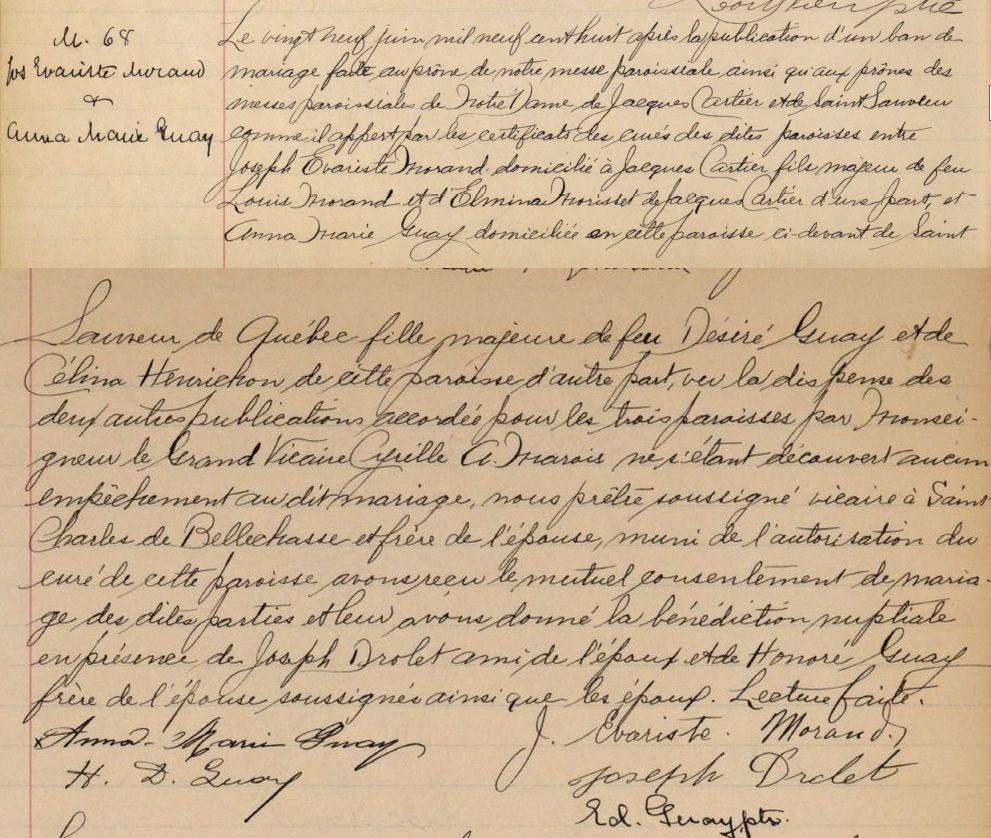 M. 68
Jos Evariste Morand
&
Anna Marie Guay
Le vingt neuf juin mil neuf cent huit après la publication d'un ban de
mariage faite au prône de notre messe paroissiale ainsi qu'aux prônes des
messes paroissiales de Notre Dame de Jacques Cartier et de Saint Sauveur
comme il appert par les certificats des curés des dites paroisses entre
Joseph Evariste Morand domicilié à Jacques Cartier fils majeur de feu
Louis Morand et d'Elmina Morisset de Jacques Cartier d'une part, et
Anna Marie Guay domiciliée en cette paroisse ci-devant de Saint
Sauveur de Québec fille majeure de feu Désiré Guay et de
Célina Henrichon de cette paroisse d'autre part, vu la dispense des
deux autres publications accordée pour les trois paroisses par Monsei-
gneur le Grand Vicaire Cyrille A. Marois ne s'étant découvert aucun
empêchement au dit mariage, nous prêtre soussigné vicaire à Saint
Charles de Bellechasse et frère de l'épouse, muni de l'autorisation du
curé de cette paroisse avons reçu le mutuel consentement de maria-
ge des dites parties et leur avons donné la bénédiction nuptiale
en présence de Joseph Drolet ami de l'époux et de Honoré Guay
frère de l'épouse soussignés ainsi que les époux. Lecture faite.
Anna-Marie Guay J. Evariste Morand
H. D. Guay Joseph Drolet
Ed. Guay ptr.